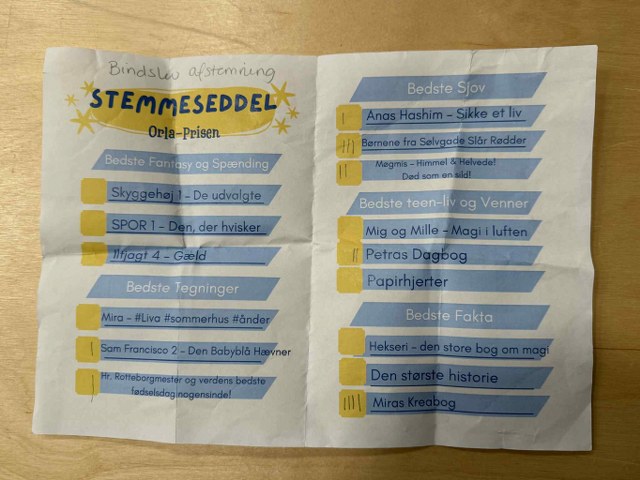 Bindslev afstemning
STEMMESEDDEL
Orla-Prisen
Bedste Fantasy og Spænding
Skyggehøj 1 - De udvalgte
SPOR 1 - Den, der hvisker
Ilfjagt 4 - Gæld
Bedste Tegninger
Mira - #Liva #sommerhus #ånder
Sam Francisco 2 - Den Babyblå Hævner
Hr. Rotteborgmester og verdens bedste
fødselsdag nogensinde!
Bedste Sjov
Anas Hashim - Sikke et liv
Børnene fra Sølvgade Slår Rødder
Møgmis - Himmel & Helvede!
Død som en sild!
Bedste teen-liv og Venner
Mig og Mille - Magi i luften
Petras Dagbog
Papirhjerter
Bedste Fakta
Hekseri - den store bog om magi
Den største historie
Miras Kreabog